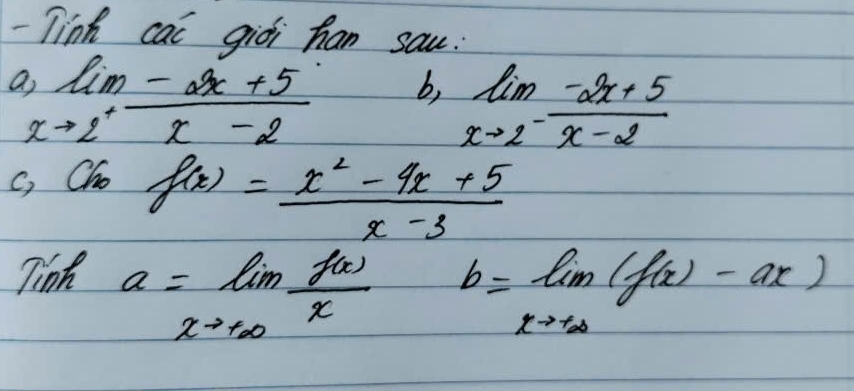 - Tính các giới han sau:
a, lim x→2⁺ (-2x+5)/(x-2) b, lim x→2⁻ (-2x+5)/(x-2)
c, Cho f(x) = (x² - 4x + 5)/(x - 3)
Tính a = lim x→+∞ f(x)/x b = lim x→+∞ (f(x) - ax)